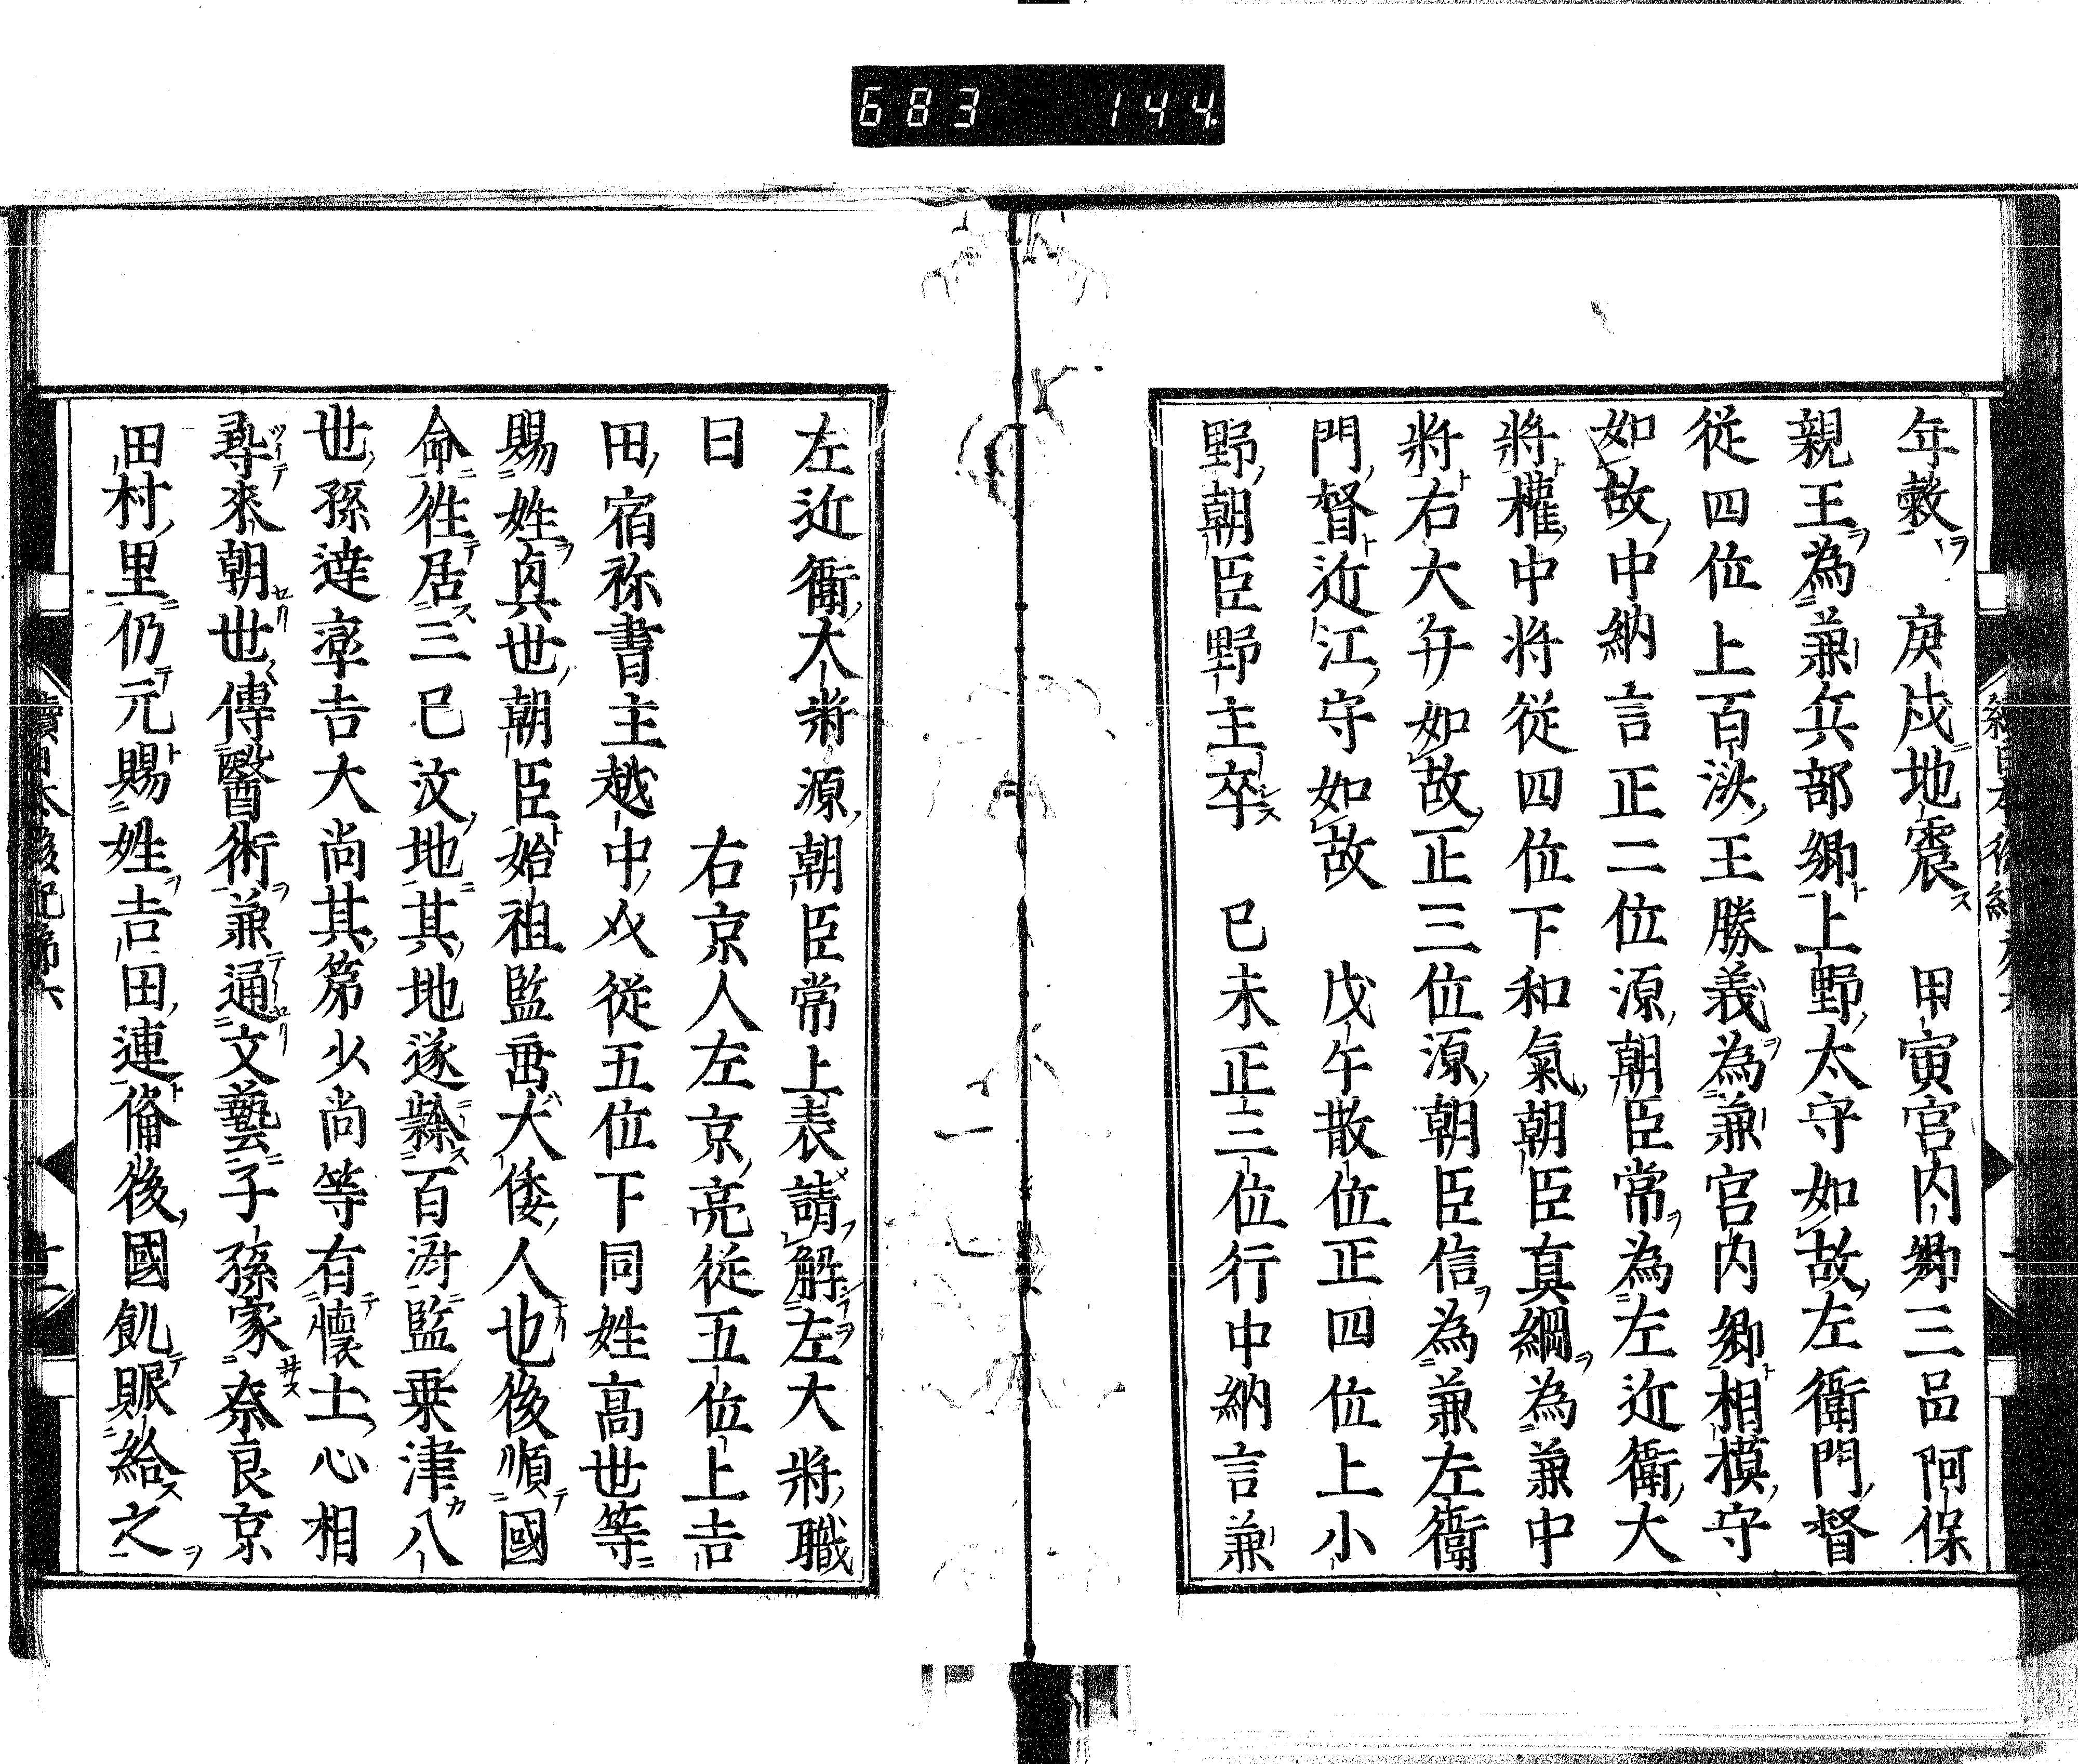 683 144
年穀　庚戌地震　甲寅宮内卿三品阿保
親王為兼兵部卿上野太守如故左衛門督
從四位上百济王勝義為兼宮内卿相模守
如故中納言正二位源朝臣常為左近衛大
將權中将從四位下和氣朝臣真綱為兼中
將右大弁如故正三位源朝臣信為兼左衛
門督近江守如故　戊午散位正四位上小
野朝臣野主卒　已未正三位行中納言兼
左近衛大將源朝臣常上表請解左大將職
日　右京人左京亮從五位上吉
田宿祢書主越中介從五位下同姓高世等
賜姓真世朝臣始祖監乗大倭人也後順國
命徃居三巳汶地其地遂隸百济監乗津八
世孫達率吉大尚其弟少尚等有懷土心相
尋來朝世傳醫術兼通文藝子孫家奈良京
田村里仍元賜姓吉田連備後國飢賑給之